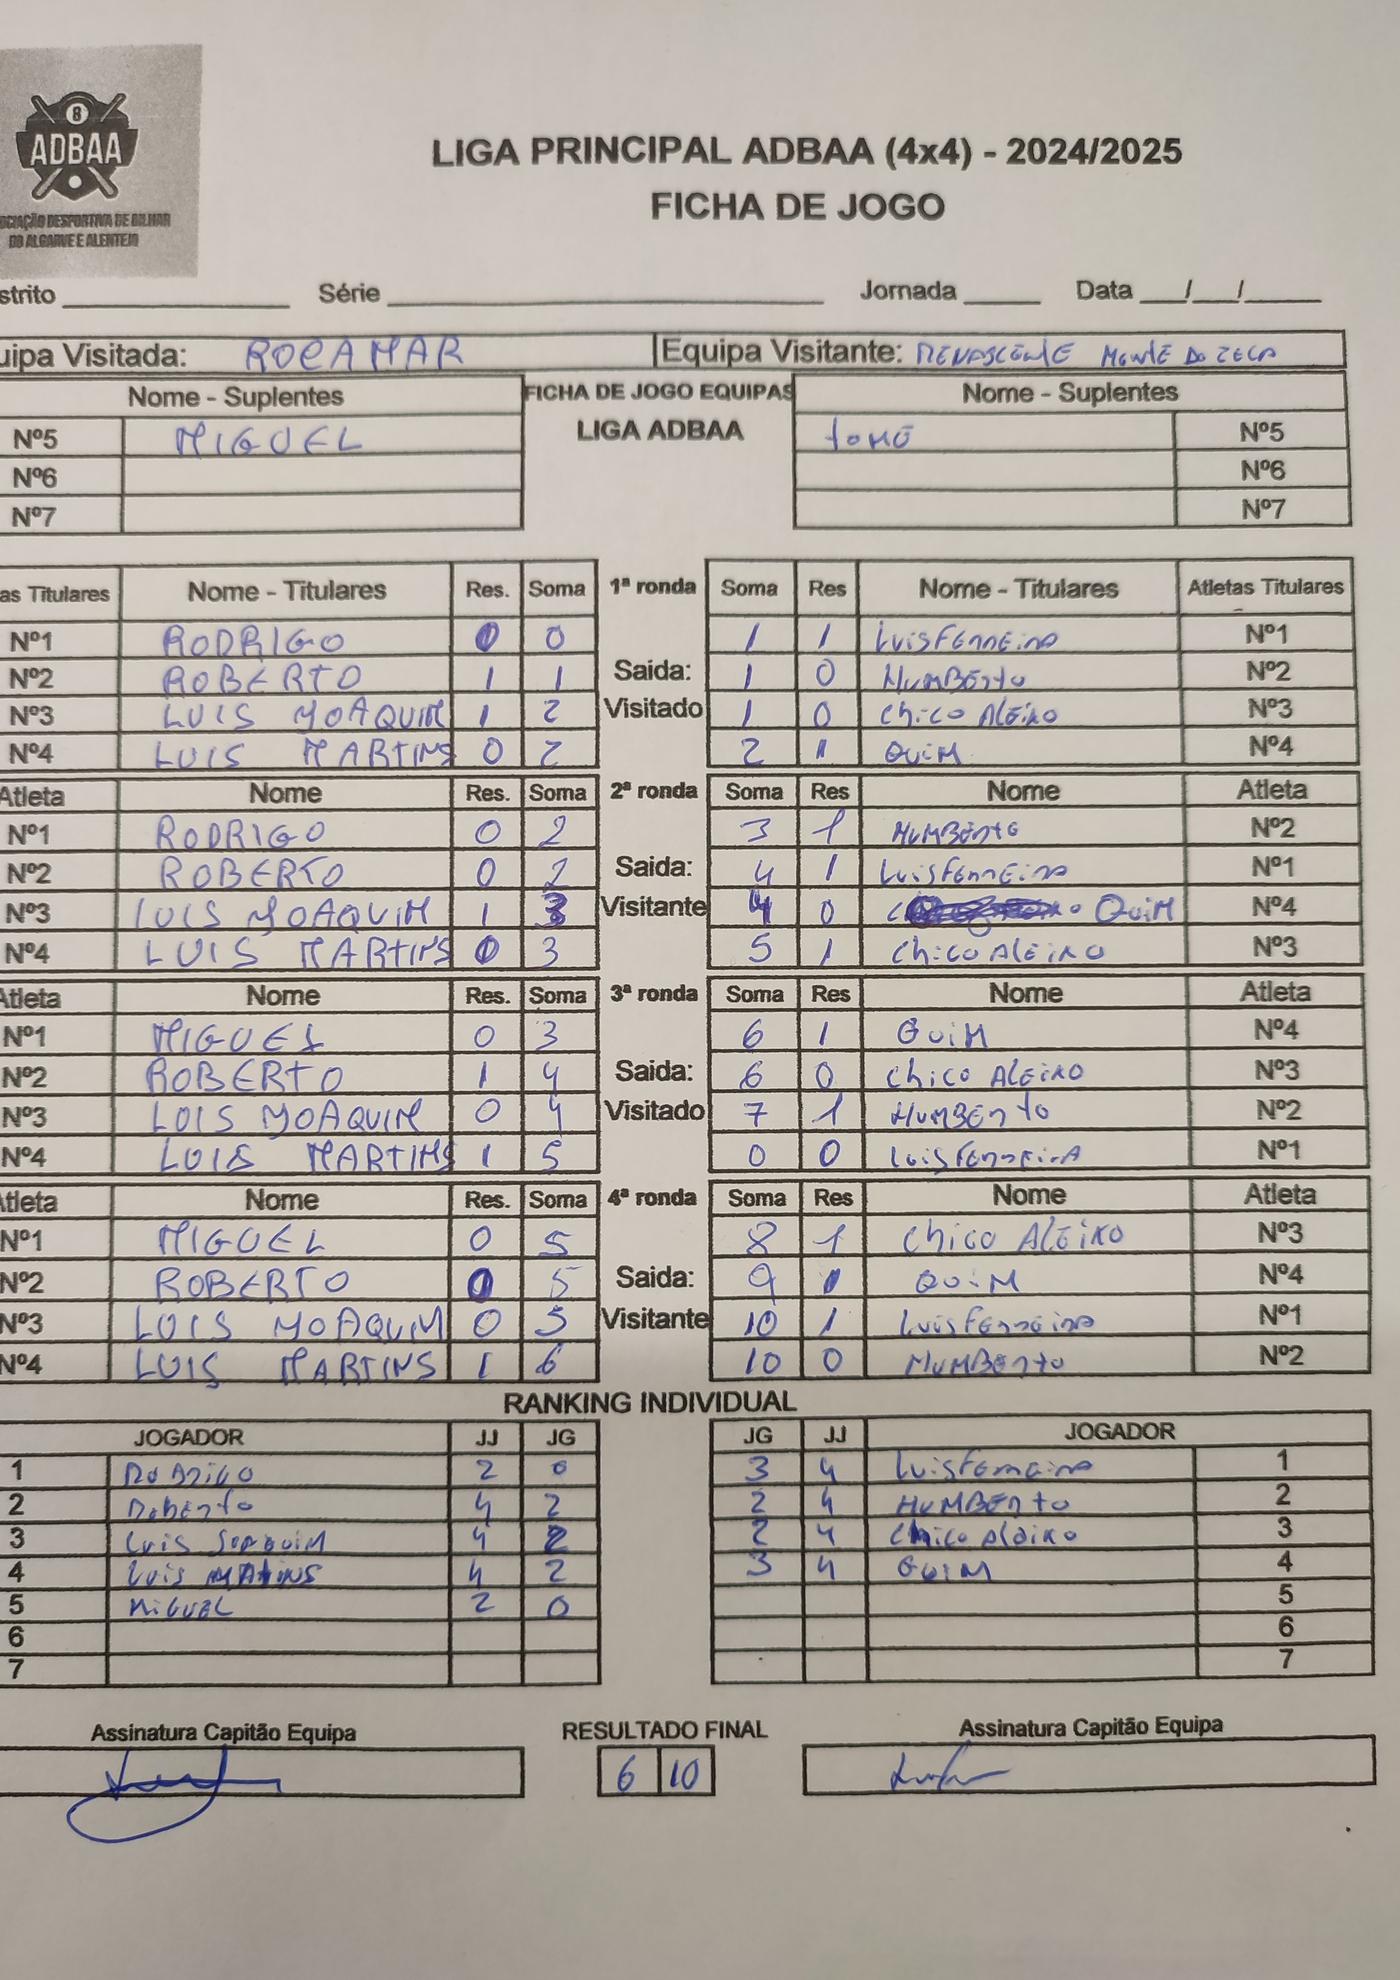 8
ADBAA
OCIAÇÃO DESPORTIVA DE BILHAR
DO ALGARVE E ALENTEJO
LIGA PRINCIPAL ADBAA (4x4) - 2024/2025
FICHA DE JOGO
strito Série Jornada Data / /
uipa Visitada: ROCAMAR Equipa Visitante: RENASCENTE MONTE DO ZECA
Nome - Suplentes FICHA DE JOGO EQUIPAS Nome - Suplentes
Nº5 MIGUEL LIGA ADBAA TOMÉ Nº5
Nº6 Nº6
Nº7 Nº7
as Titulares Nome - Titulares Res. Soma 1ª ronda Soma Res Nome - Titulares Atletas Titulares
Nº1 RODRIGO 0 0 1 1 Luis Ferreira Nº1
Nº2 ROBERTO 1 1 Saida: 1 0 HUMBErto Nº2
Nº3 LUIS JOAQUIM 1 2 Visitado 1 0 Chico Aleixo Nº3
Nº4 LUIS MARTINS 0 2 2 1 QUIM Nº4
Atleta Nome Res. Soma 2ª ronda Soma Res Nome Atleta
Nº1 RODRIGO 0 2 3 1 HUMBErto Nº2
Nº2 ROBERTO 0 2 Saida: 4 1 Luis Ferreira Nº1
Nº3 LUIS JOAQUIM 1 3 Visitante 4 0 QuiM Nº4
Nº4 LUIS MARTINS 0 3 5 1 Chico ALEIXO Nº3
Atleta Nome Res. Soma 3ª ronda Soma Res Nome Atleta
Nº1 MIGUEL 0 3 6 1 QuiM Nº4
Nº2 ROBERTO 1 4 Saida: 6 0 Chico ALEIXO Nº3
Nº3 LUIS JOAQUIM 0 4 Visitado 7 1 HUMBErto Nº2
Nº4 LUIS MARTINS 1 5 0 0 Luis FerreirA Nº1
Atleta Nome Res. Soma 4ª ronda Soma Res Nome Atleta
Nº1 MIGUEL 0 5 8 1 Chico ALEIXO Nº3
Nº2 ROBERTO 0 5 Saida: 9 1 QUIM Nº4
Nº3 LUIS JOAQUIM 0 5 Visitante 10 1 Luis Ferreira Nº1
Nº4 LUIS MARTINS 1 6 10 0 HUMBErto Nº2
RANKING INDIVIDUAL
JOGADOR JJ JG JG JJ JOGADOR
1 Rodrigo 2 0 3 4 Luis Ferreira 1
2 Roberto 4 2 2 4 HUMBErto 2
3 Luis Joaquim 4 2 2 4 Chico Aleixo 3
4 Luis MARtiNS 4 2 3 4 QuiM 4
5 MiGUEL 2 0 5
6 6
7 7
Assinatura Capitão Equipa RESULTADO FINAL Assinatura Capitão Equipa
6 10